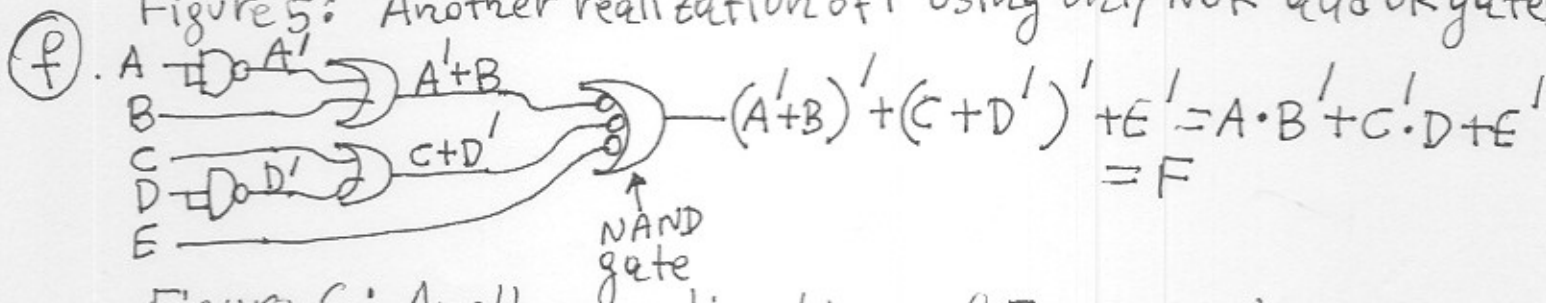 Figure 5: Another realization of F using only NOR and OR gate
(f). A A' A'+B
B
(A'+B)'+(C+D')'+E'=A·B'+C'·D+E'
C C+D'
=F
D D'
E
NAND
gate